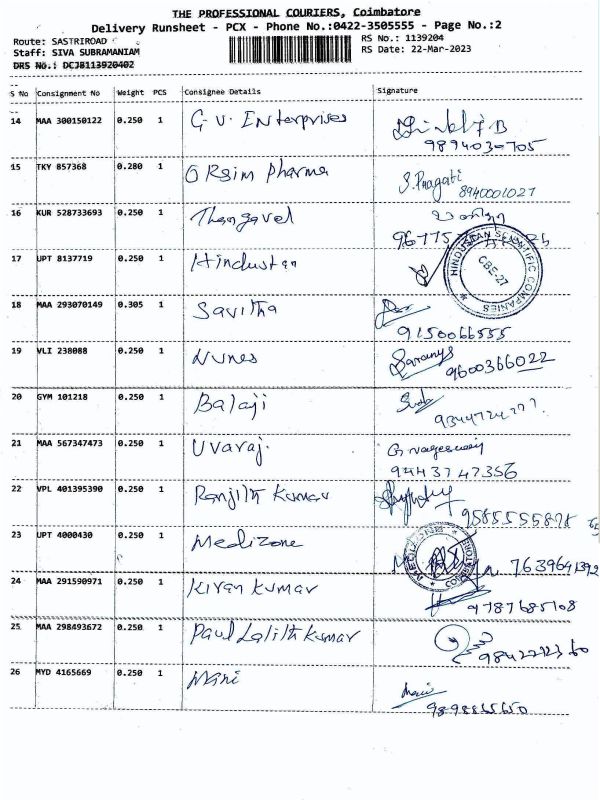 THE PROFESSIONAL COURIERS, Coimbatore
Delivery Runsheet - PCX - Phone No.:0422-3505555 - Page No.:2
Route: SASTRIROAD
Staff: SIVA SUBRAMANIAM
DRS No.: DCJB113920402
RS No.: 1139204
RS Date: 22-Mar-2023
S No Consignment No Weight PCS Consignee Details Signature
14 MAA 300150122 0.250 1 G.V. Enterprises
15 TKY 857368 0.280 1 ORgim Pharma S.Pragati
8940001027
16 KUR 528733693 0.250 1 Thangavel
17 UPT 8137719 0.250 1 Hindustan
HINDUSTAN SCIENTIFIC COMPANIES
CBE-27
18 MAA 293070149 0.305 1 Savitha
9150066555
19 VLI 238088 0.250 1 Nunes Saranya
9600366022
20 GYM 101218 0.250 1 Balaji
21 MAA 567347473 0.250 1 Uvaraj.
9443747356
22 VPL 401395390 0.250 1 Ranjith Kumar
23 UPT 4000430 0.250 1 Medizone
24 MAA 291590971 0.250 1 Kiran Kumar
9787685108
25 MAA 298493672 0.250 1 Paul Lalith Kumar
26 MYD 4165669 0.250 1 Mani
9898865650